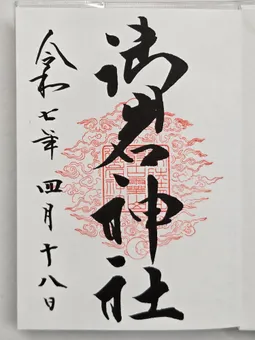 御岩神社
令和七年 四月十八日